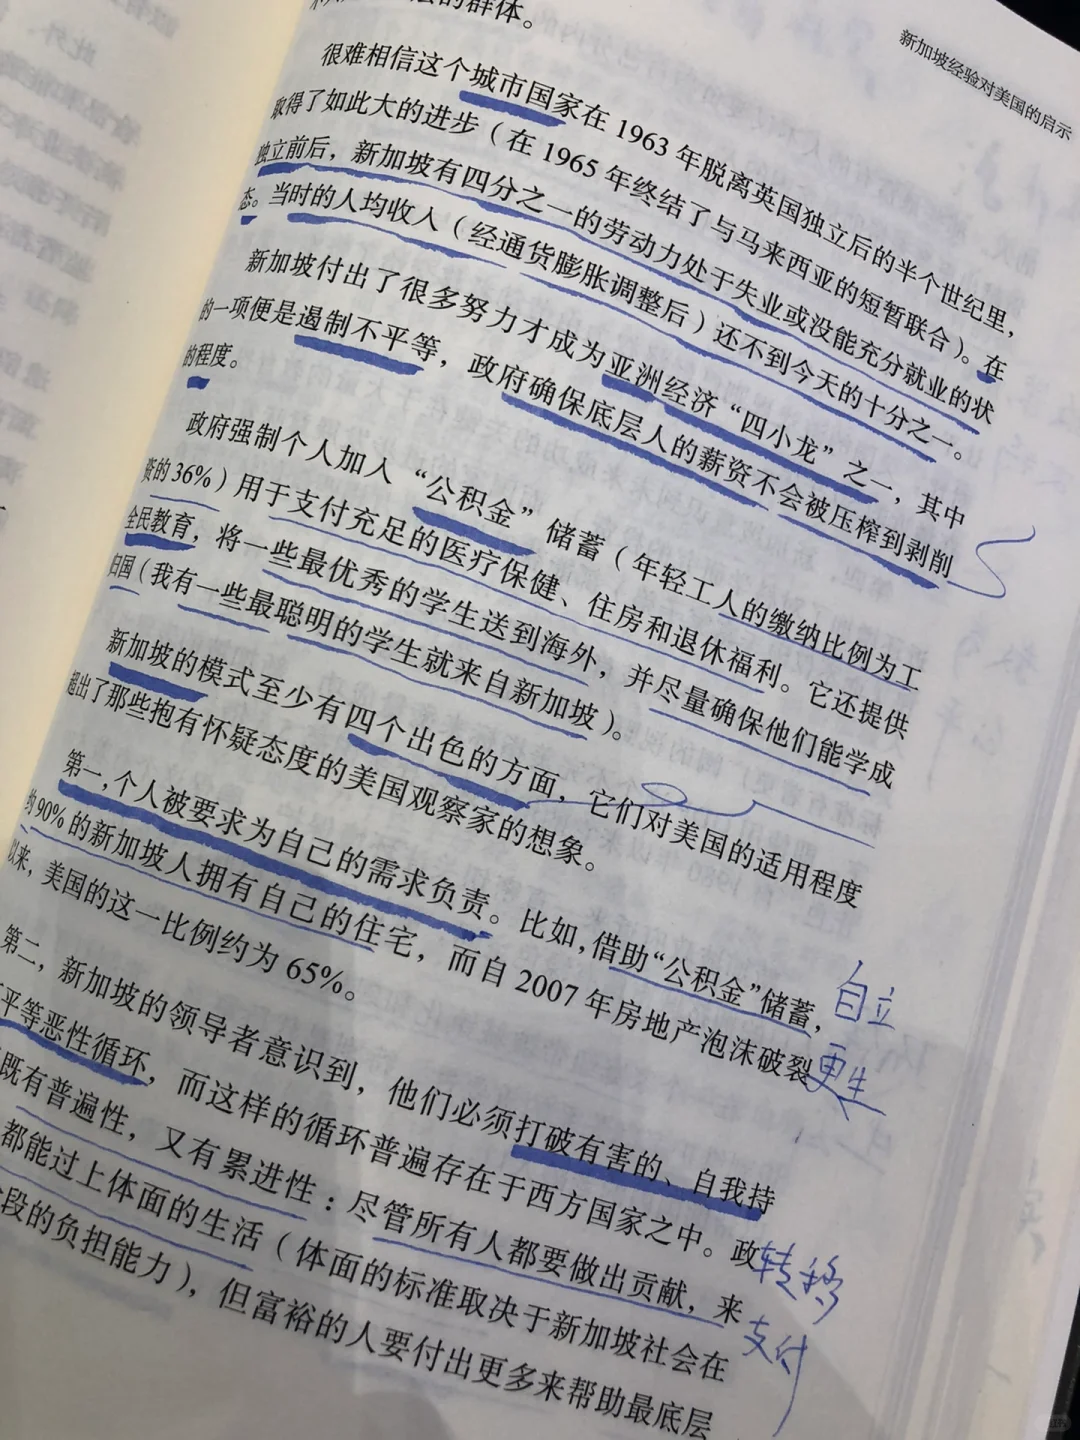 新加坡经验对美国的启示
的群体。
很难相信这个城市国家在 1963 年脱离英国独立后的半个世纪里，
取得了如此大的进步（在 1965 年终结了与马来西亚的短暂联合）。在
独立前后，新加坡有四分之一的劳动力处于失业或没能充分就业的状
态。当时的人均收入（经通货膨胀调整后）还不到今天的十分之一。
新加坡付出了很多努力才成为亚洲经济“四小龙”之一，其中
的一项便是遏制不平等，政府确保底层人的薪资不会被压榨到剥削
的程度。
政府强制个人加入“公积金”储蓄（年轻工人的缴纳比例为工
资的 36%）用于支付充足的医疗保健、住房和退休福利。它还提供
全民教育，将一些最优秀的学生送到海外，并尽量确保他们能学成
归国（我有一些最聪明的学生就来自新加坡）。
新加坡的模式至少有四个出色的方面，它们对美国的适用程度
超出了那些抱有怀疑态度的美国观察家的想象。
第一，个人被要求为自己的需求负责。比如，借助“公积金”储蓄，
约 90% 的新加坡人拥有自己的住宅，而自 2007 年房地产泡沫破裂
以来，美国的这一比例约为 65%。
自立
更生
第二，新加坡的领导者意识到，他们必须打破有害的、自我持
平等恶性循环，而这样的循环普遍存在于西方国家之中。政
既有普遍性，又有累进性：尽管所有人都要做出贡献，来
都能过上体面的生活（体面的标准取决于新加坡社会在
段的负担能力），但富裕的人要付出更多来帮助最底层
转移
支付